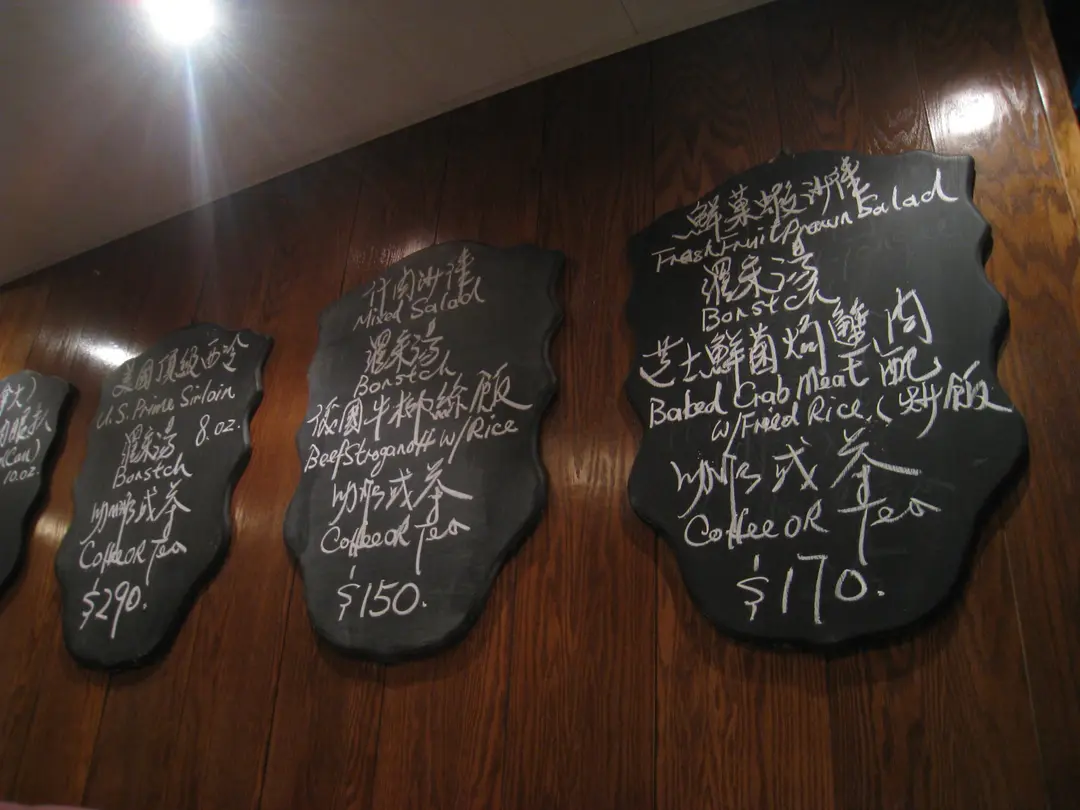 大)
眼扒
(Can)
10.oz.
美國頂級西冷
U.S. Prime Sirloin
羅宋湯 8.oz.
Borstch
咖啡或茶
Coffee OR Tea
$290.
什肉沙律
Mixed Salad
羅宋湯
Borstch
俄國牛柳絲飯
Beef Stroganoff w/Rice
咖啡或茶
Coffee OR Tea
$150.
鮮菓蝦沙律
Fresh Fruit Prawn Salad
羅宋湯
Borstch
芝士鮮菌焗蟹肉
Baked Crab Meat 配
w/Fried Rice (炒飯
咖啡或茶
Coffee OR Tea
$170.